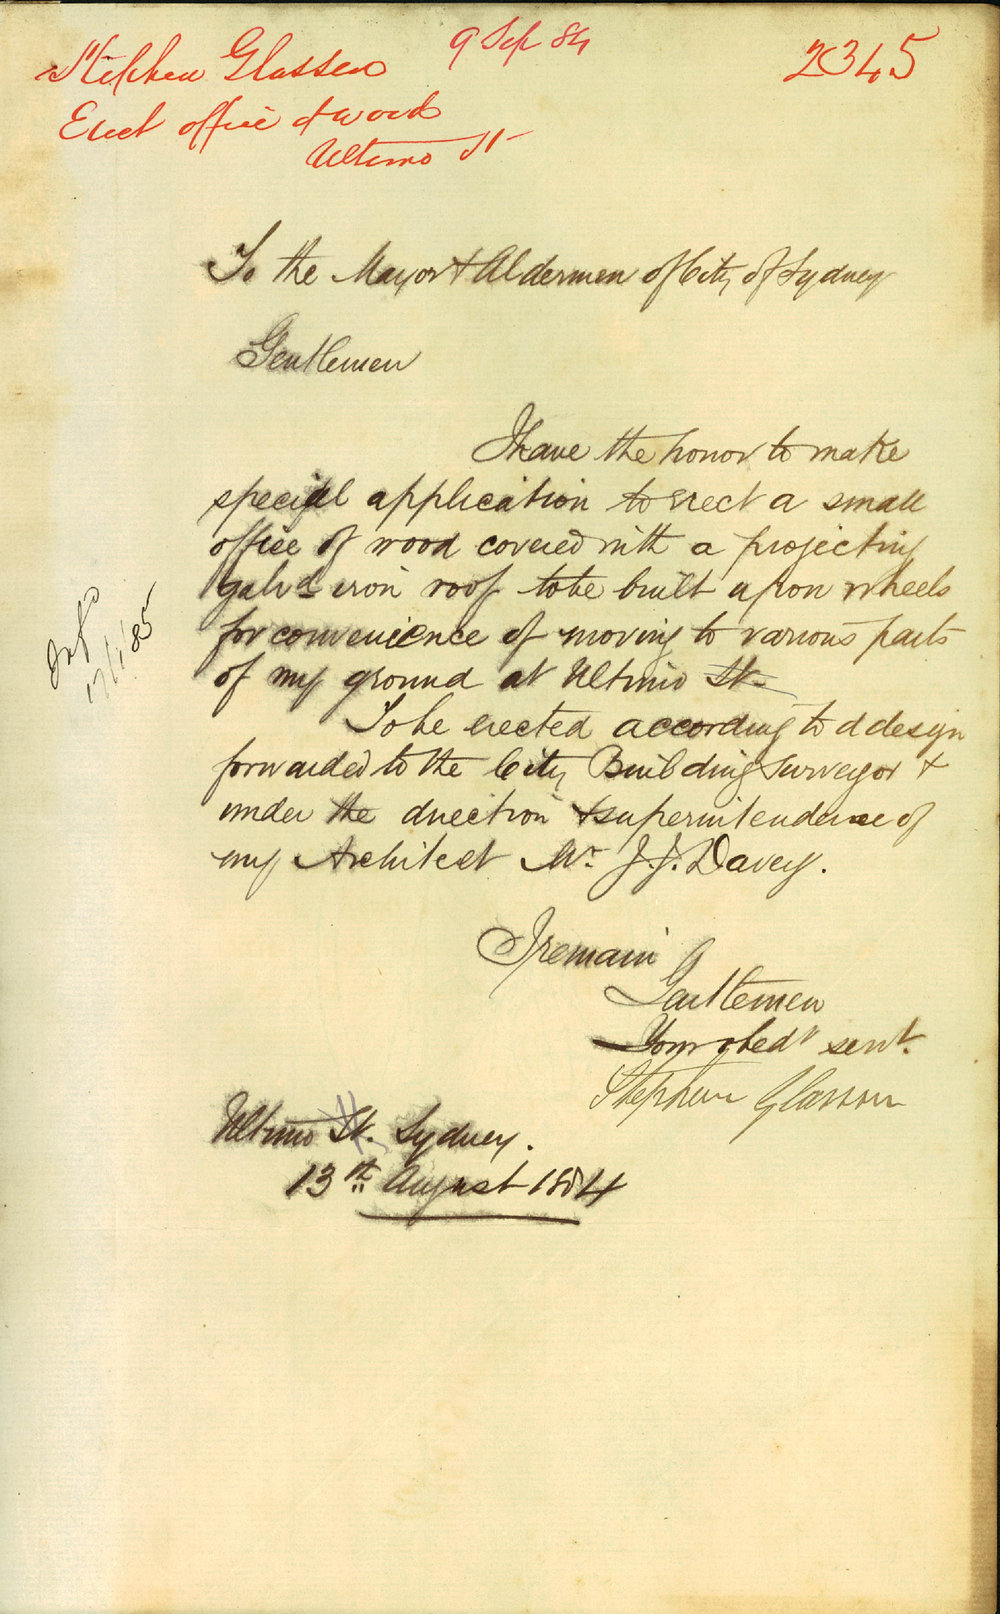 Stephen Glasson
9 Sep 84
2345
Erect office of wood
Ultimo St
To the Mayor & Aldermen of City of Sydney
Gentlemen
I have the honor to make
special application to erect a small
office of wood covered with a projecting
galvd iron roof to be built upon wheels
for convenience of moving to various parts
of my ground at Ultimo St.
17/1/85
To be erected according to a design
forwarded to the City Building Surveyor &
under the direction & superintendence of
my Architect Mr. J. J. Davey.
I remain
Gentlemen
Your obedt servt.
Stephen Glasson
Ultimo St. Sydney.
13th August 1884